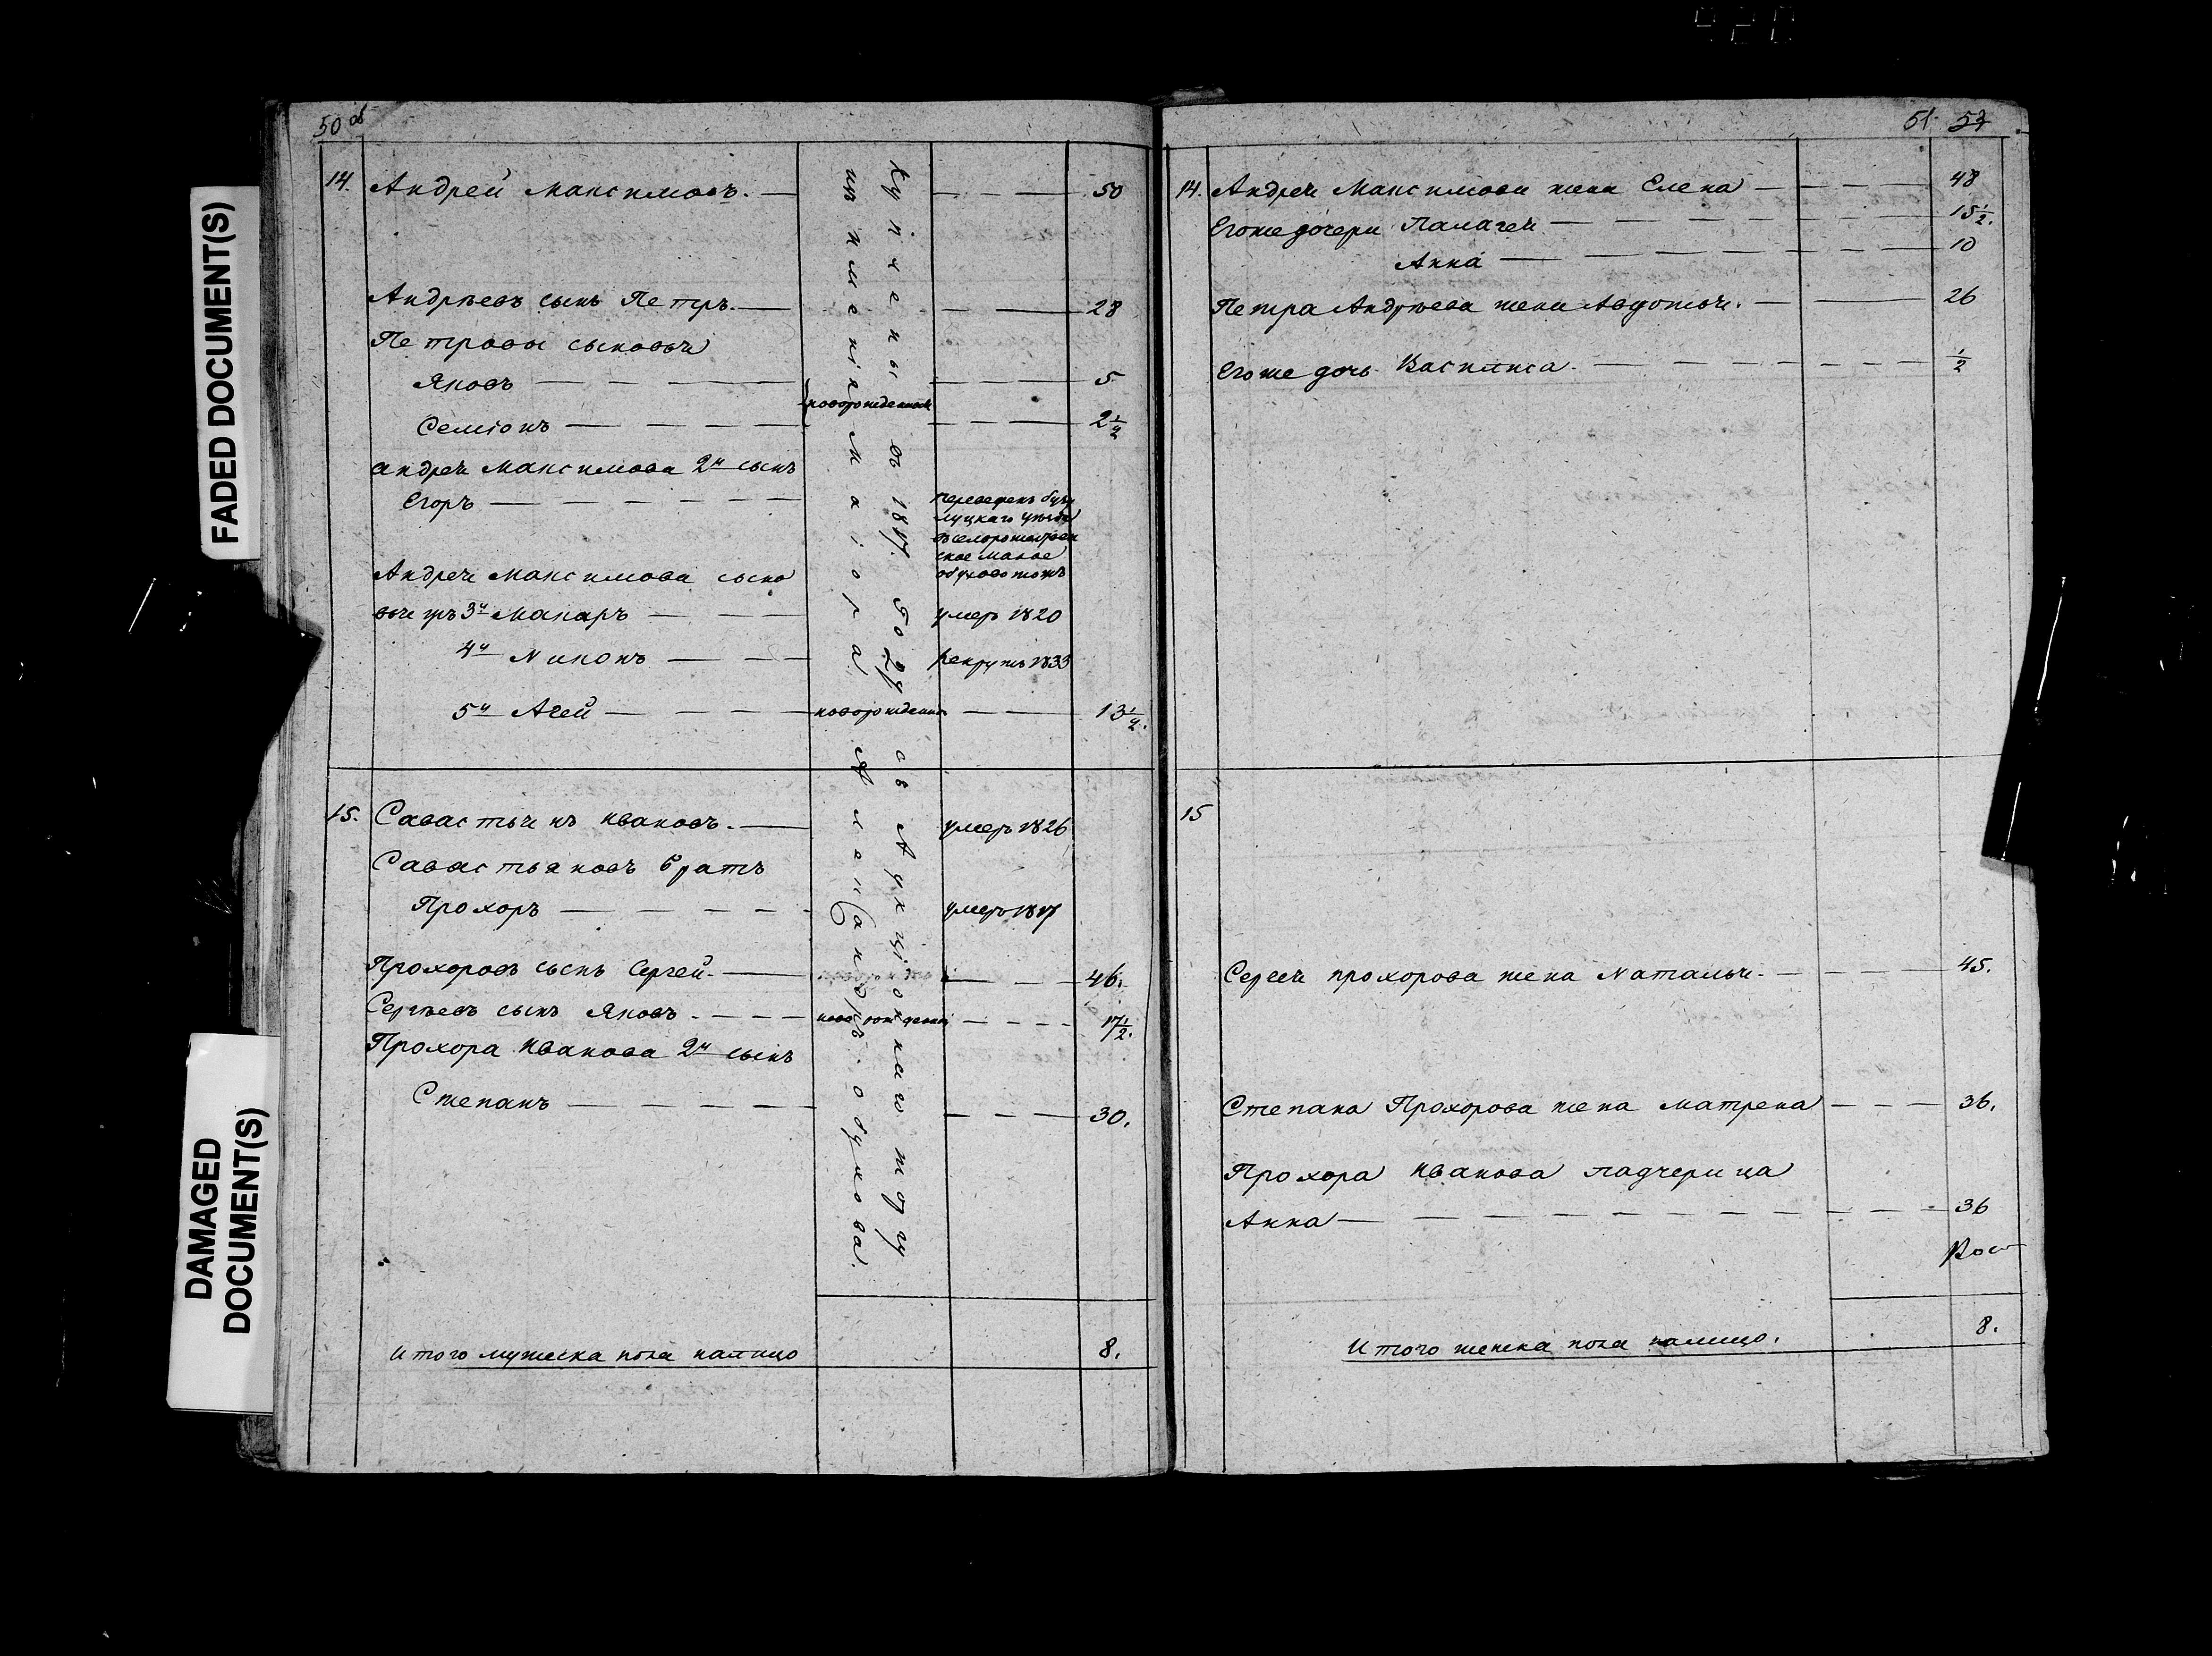 420
FADED DOCUMENT(S)
DAMAGED
DOCUMENT(S)
50 об
14. Андрей Максимовъ. — — — — 50
Андрѣевъ сынъ Петръ. — — — 28
Петровы сыновья
Яковъ — — — — — — — 5
новорожденные
Семіонъ — — — — — — — 2 1/2
Андрея Максимова 2й сынъ
Егоръ — — — — — переведенъ бузу
луцкаго уѣзда
въ село рожествен
ское малое
обухово тожъ
Андрея Максимова сыно
вья 3й Макаръ — — умеръ 1820
4й Никонъ — — рекрутъ 1833
5й Агей — — — новорожденъ — — 13 1/2.
15. Савастьянъ Ивановъ. — умеръ 1826
Савастьяновъ братъ
Прохоръ — — — — умеръ 1817
Прохоровъ сынъ Сергей. — — — 46.
Сергѣевъ сынъ Яковъ. — — — новорожденный — — — 17 1/2.
Прохора Иванова 2й сынъ
Степанъ — — — — — — — 30.
Куплены въ 1817. году съ Аукціоннаго торгу
изъ имѣнія Маіора Александръ Обухова.
Итого мужеска пола налицо 8.
51 53
14. Андрея Максимова жена Елена — — — — 48
Егоже дочери Палагея — — — — — 15 1/2.
Анна — — — — — 10
Петра Андрѣева жена Авдотья. — — 26
Егоже дочь Василиса. — — — — — 1/2
15
Сергея Прохорова жена Наталья. — — — 45.
Степана Прохорова жена Матрена — — — 36.
Прохора Иванова падчерица
Анна — — — — — — — — — 36
Итого женска пола налицо. 8.